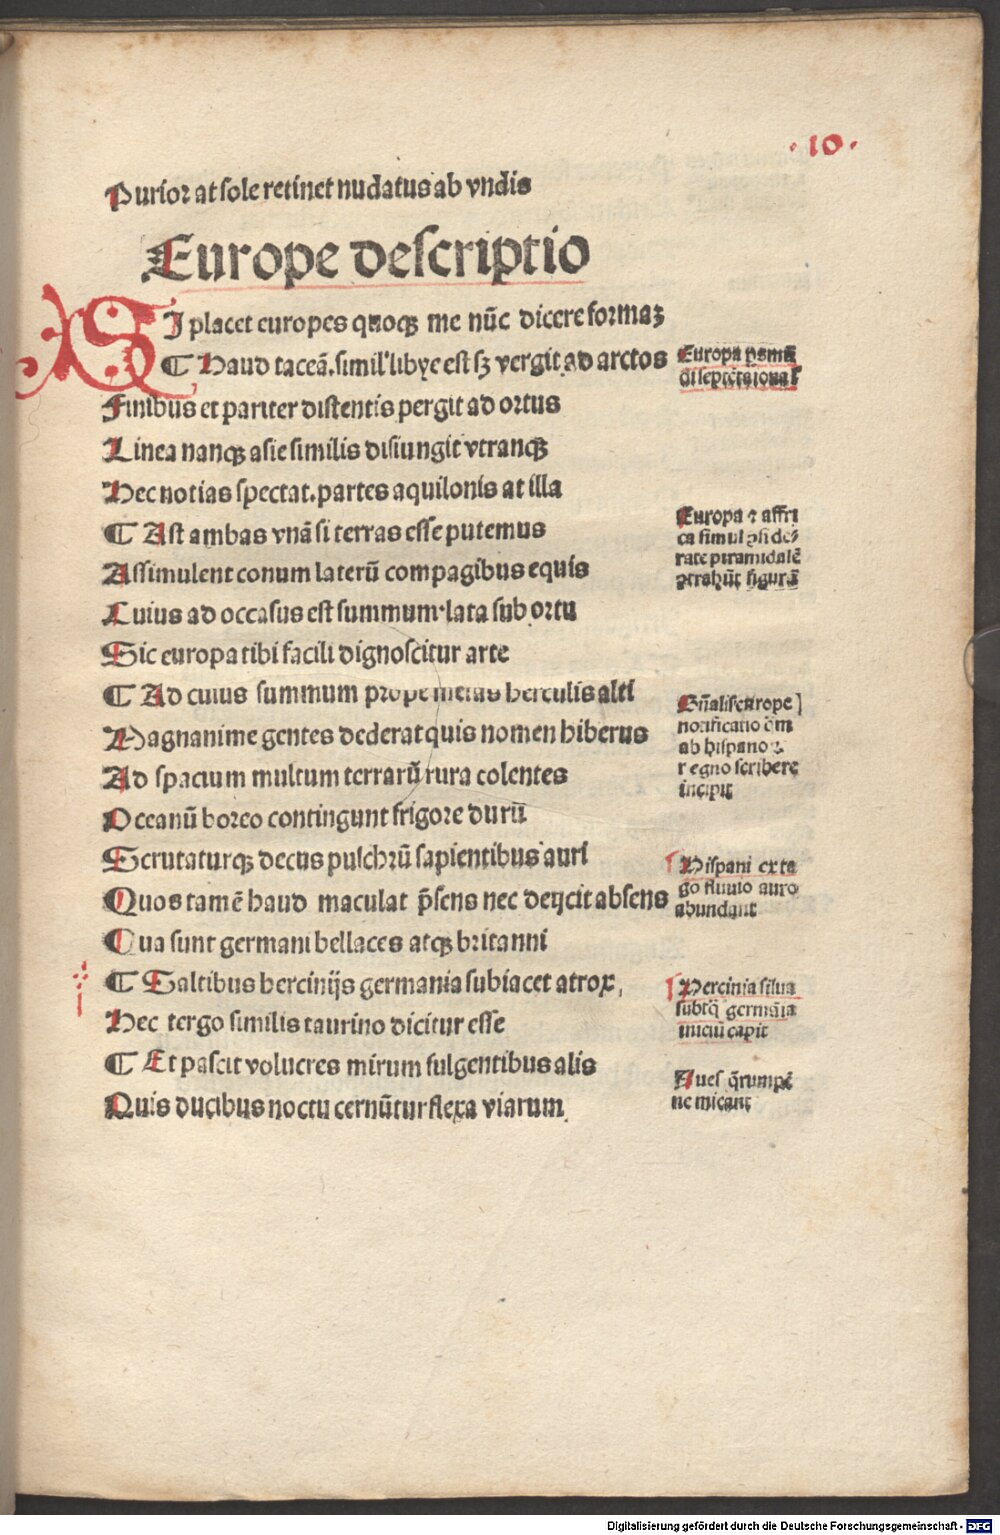 ·10·
Purior at sole retinet nudatus ab vndis
Europe descriptio
SI placet europes quoqꝫ me nūc dicere formaꝫ
¶ Haud taceā. simil' libye est sꝫ vergit ad arctos
Finibus et pariter distentis pergit ad ortus
Linea nanqꝫ asie similis disiungit vtranqꝫ
Hec notias spectat. partes aquilonis at illa
¶ Ast ambas vnā si terras esse putemus
Assimulent conum laterū compagibus equis
Cuius ad occasus est summum· lata sub ortu
Sic europa tibi facili dignoscitur arte
¶ Ad cuius summum prope metas herculis alti
Magnanime gentes dederat quis nomen hiberus
Ad spacium multum terrarū rura colentes
Oceanū boreo contingunt frigore durū
Scrutaturqꝫ decus pulchrū sapientibus auri
Quos tamē haud maculat p̄sens nec deijcit absens
Qua sunt germani bellaces atqꝫ britanni
¶ Saltibus hercinijs germania subiacet atrox,
Hec tergo similis taurino dicitur esse
¶ Et pascit volucres mirum fulgentibus alis
Quis ducibus noctu cernūtur flexa viarum
Europa
Europa ⁊ affri
ca simul
rate piramidalē
ꝯtrahūt figurā
europe
notificatio
ab hispano
regno scribere
incipit
Hispani ex ta
go fluuio auro
abundant
Hercinia silua
germāia
iniciū capit
Aues
ne micant
Digitalisierung gefördert durch die Deutsche Forschungsgemeinschaft - DFG